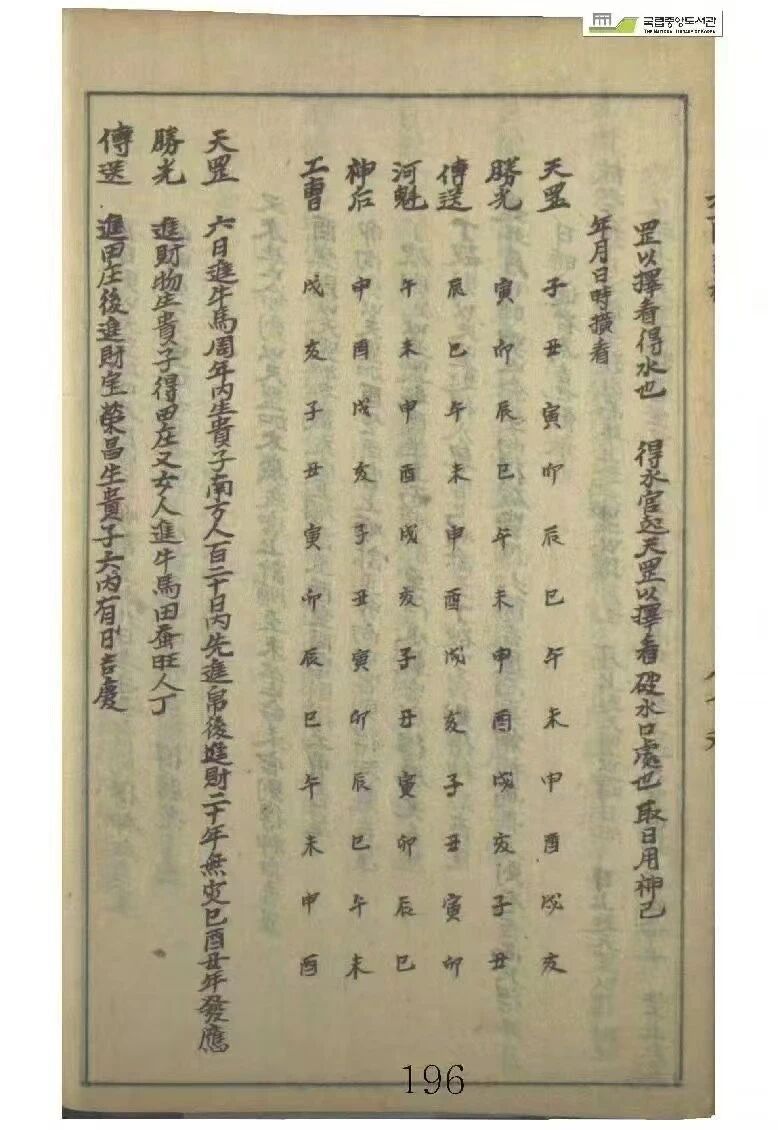 국립중앙도서관
THE NATIONAL LIBRARY OF KOREA
罡以擇看得水也 得水官起天罡以擇看破水口處也 取日用神己
年月日時橫看
天罡 子丑寅卯辰巳午未申酉戌亥
勝光 寅卯辰巳午未申酉戌亥子丑
傳送 辰巳午未申酉戌亥子丑寅卯
河魁 午未申酉戌亥子丑寅卯辰巳
神后 申酉戌亥子丑寅卯辰巳午未
工曹 戌亥子丑寅卯辰巳午未申酉
天罡 六日進牛馬周年內生貴子南方人百二十日內先進帛後進財二十年無灾巳酉丑年發應
勝光 進財物生貴子得田庄又女人進牛馬田蚕旺人丁
傳送 進田庄後進財宝荣昌生貴子六內有日吉慶
196